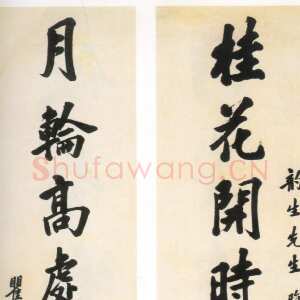 韵生先生
桂花開時
月輪高處
瞿
Shufawang.CN